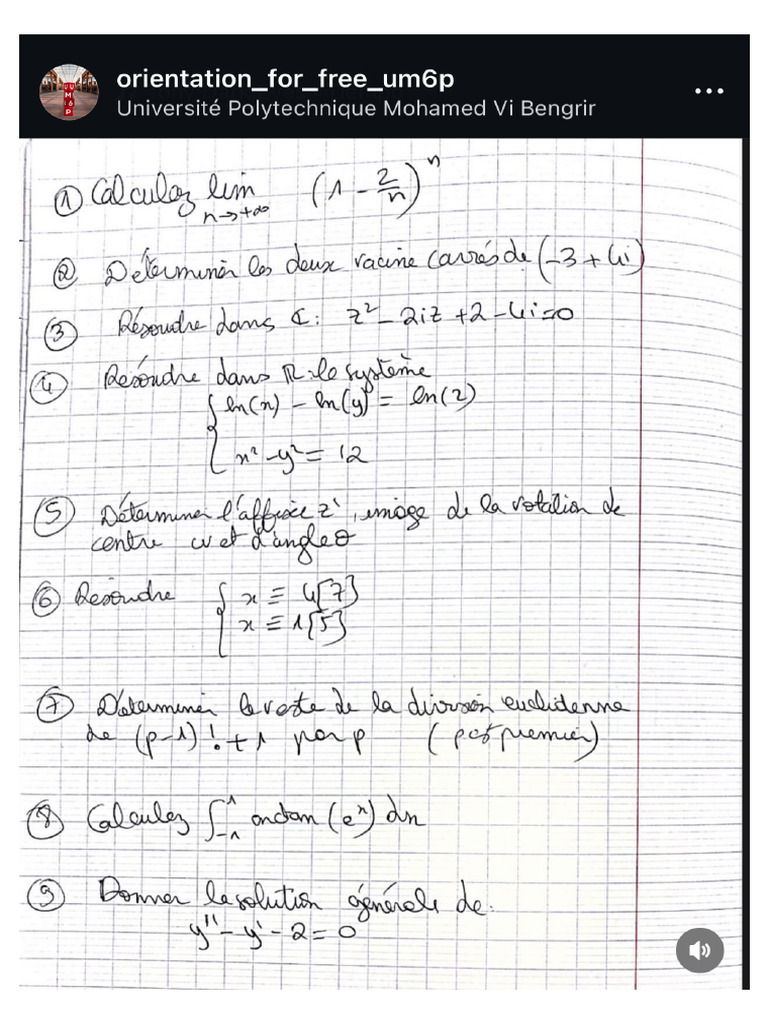 orientation_for_free_um6p
Université Polytechnique Mohamed Vi Bengrir
① Calculez lim (1 - 2/n)^n
n→+∞
② Déterminer les deux racine carrés de (-3 + 4i)
③ Résoudre dans ℂ : z² - 2iz + 2 - 4i = 0
④ Résoudre dans ℝ : le système
{ ln(x) - ln(y) = ln(2)
x² - y² = 12
⑤ Déterminer l'affixe z', image de la rotation de
centre w et d'angle θ
⑥ Résoudre { x ≡ 4[7]
x ≡ 1[5]
⑦ Déterminer le reste de la division euclidienne
de (p-1)! + 1 par p (p est premier)
⑧ Calculez ∫_{-1}^{1} arctan (e^x) dx
⑨ Donner la solution générale de:
y'' - y' - 2 = 0